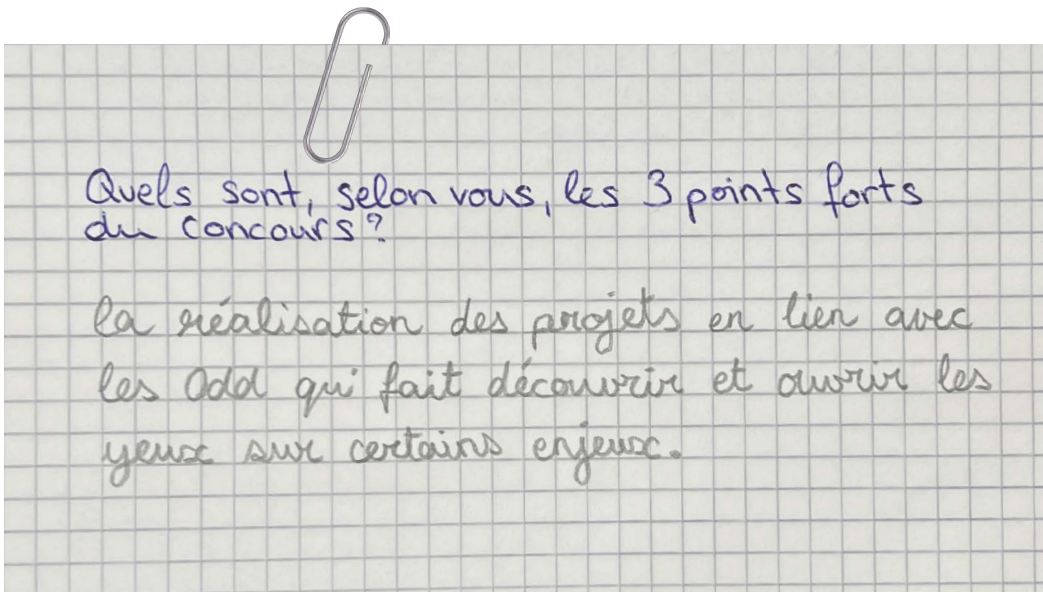 Quels sont, selon vous, les 3 points forts
du concours?
la réalisation des projets en lien avec
les Odd qui fait découvrir et ouvrir les
yeux sur certains enjeux.